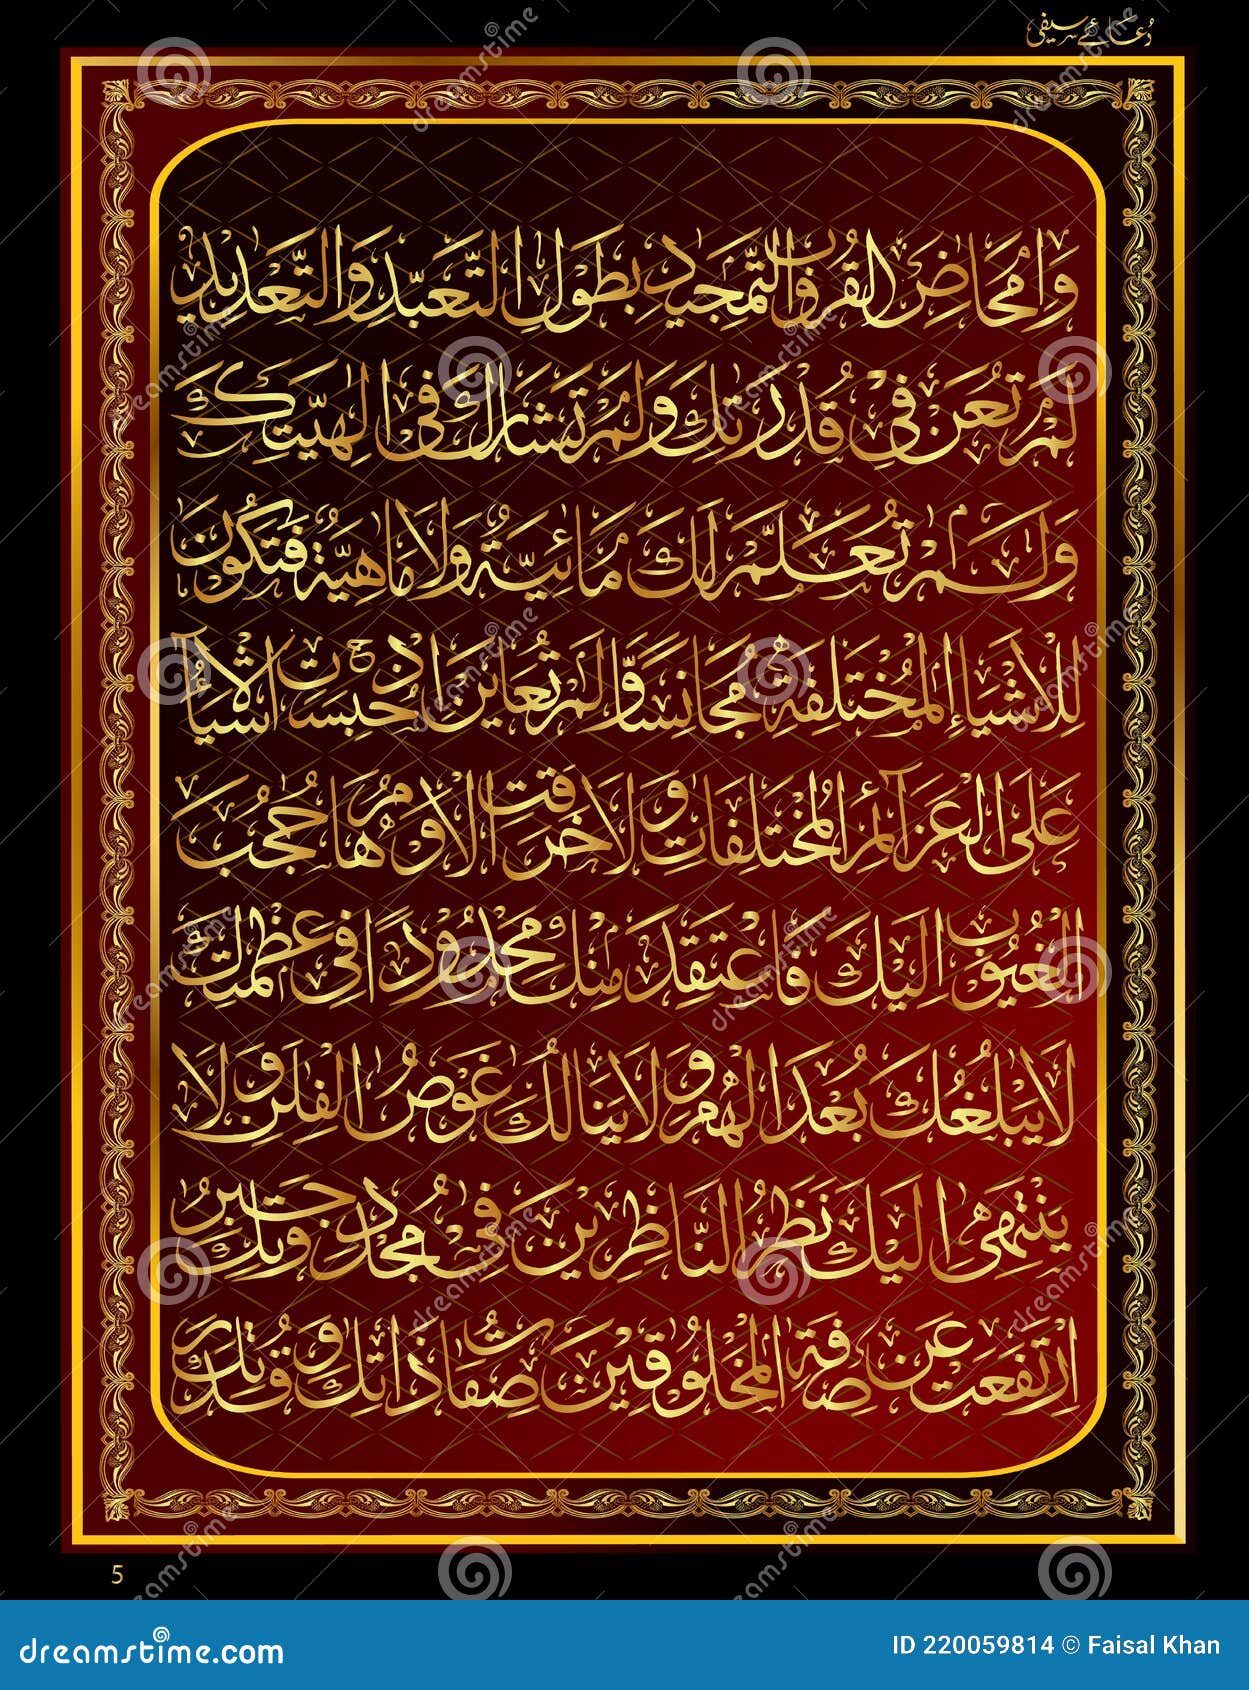 دُعائے سیفی
وَاِمْحَاضِ الْقُرْبِ وَالتَّمْجِيْدِ بِطَوْلِ التَّعَبُّدِ وَالتَّعْدِيْدِ
لَمْ تُعَنْ فِيْ قُدْرَتِكَ وَلَمْ تُشَارَكْ فِى اِلٰهِيَّتِكَ
وَلَمْ تُعْلَمْ لَكَ مَائِيَّةٌ وَلَا مَاهِيَّةٌ فَتَكُوْنَ
لِلْاَشْيَاءِ الْمُخْتَلِفَةِ مُجَانِسًا وَّلَمْ تُعَايَنْ اِذْ حُبِسَتِ الْاَشْيَآءُ
عَلَى الْعَزَآئِمِ الْمُخْتَلِفَاتِ وَلَا خَرَقَتِ الْاَوْهَامُ حُجُبَ
الْغُيُوْبِ اِلَيْكَ فَاَعْتَقِدَ مِنْكَ مَحْدُوْدًا فِى عَظَمَتِكَ
لَا يَبْلُغُكَ بُعْدُ الْهِمَمِ وَلَا يَنَالُكَ غَوْصُ الْفِطَنِ وَلَا
يَنْتَهِىْ اِلَيْكَ نَظَرُ النَّاظِرِيْنَ فِىْ مَجْدِ جَبَرُوْتِكَ
اِرْتَفَعَتْ عَنْ صِفَةِ الْمَخْلُوْقِيْنَ صِفَاتُ ذَاتِكَ وَقُدْرَتِكَ
5
dreamstime.com
ID 220059814 © Faisal Khan